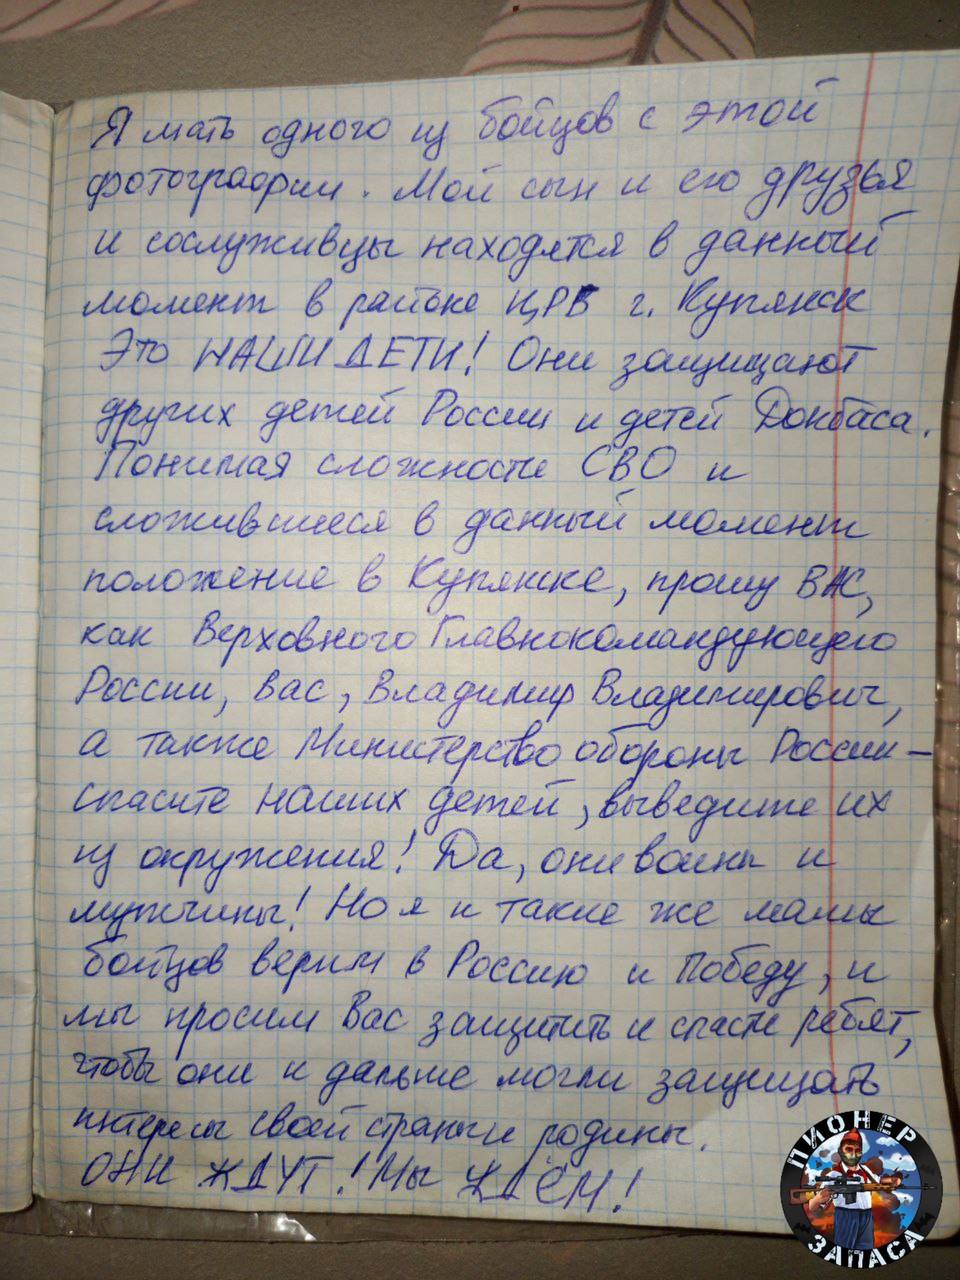 Я мать одного из бойцов с этой
фотографии. Мой сын и его друзья
и сослуживцы находятся в данный
момент в районе ЦРБ г. Купянск
Это НАШИ ДЕТИ! Они защищают
других детей России и детей Донбаса.
Понимая сложности СВО и
сложившиеся в данный момент
положение в Купянске, прошу ВАС,
как Верховного Главнокомандующего
России, Вас, Владимир Владимирович,
а также Министерство обороны России –
спасите наших детей, выведите их
из окружения! Да, они воины и
мужчины! Но я и такие же мамы
бойцов верим в Россию и Победу, и
мы просим Вас защитить и спасти ребят,
чтобы они и дальше могли защищать
интересы своей страны и родины.
ОНИ ЖДУТ! Мы ЖДЁМ!
ПИОНЕР
ЗАПАСА